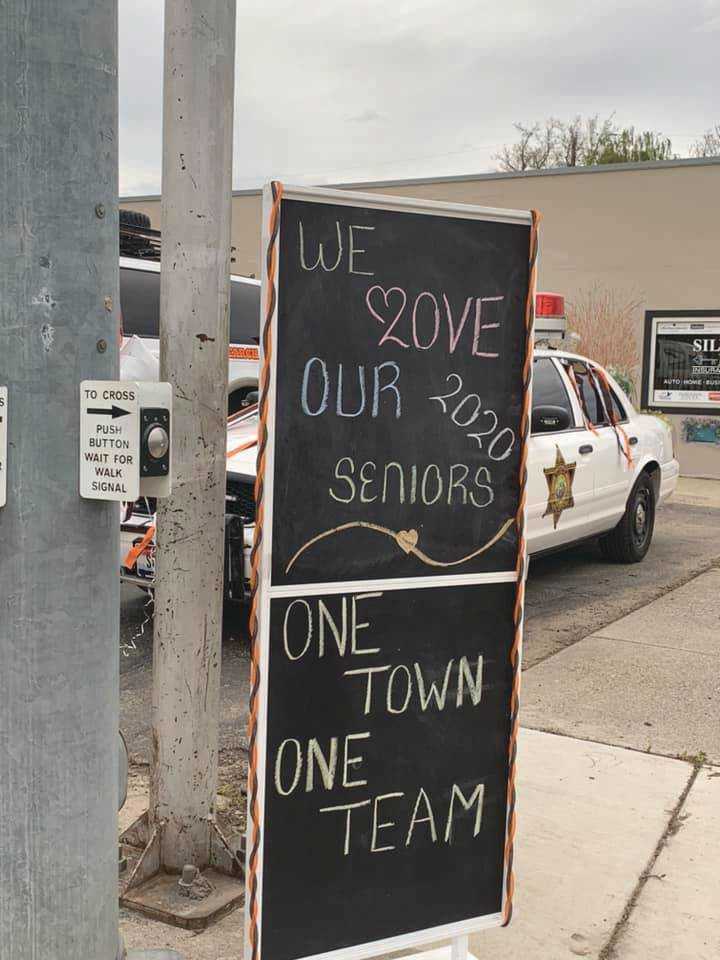 WE
LOVE
OUR 2020
SENIORS
ONE
TOWN
ONE
TEAM
TO CROSS
PUSH
BUTTON
WAIT FOR
WALK
SIGNAL
S
SIL
INSURA
AUTO · HOME · BUSI